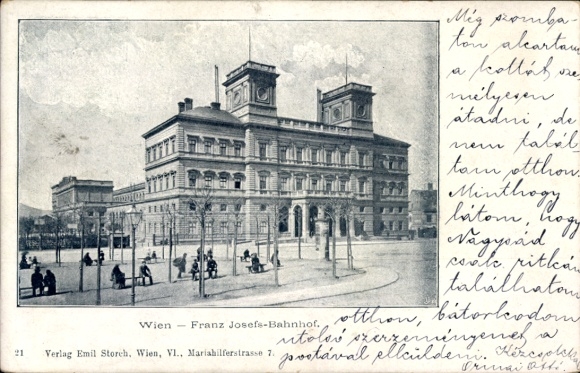 Még szomba-
ton akartam
a kottát sze
mélyesen
átadni, de
nem talál
tam otthon.
Minthogy
látom, hogy
Nagysád
csak ritkán
találhatom
otthon, bátorkodom
utolsó szerzeményenet a
postával elküldeni. Kézcsókkal
Ormai Ottó.
Wien – Franz Josefs-Bahnhof.
21 Verlag Emil Storch, Wien, VI., Mariahilferstrasse 7.